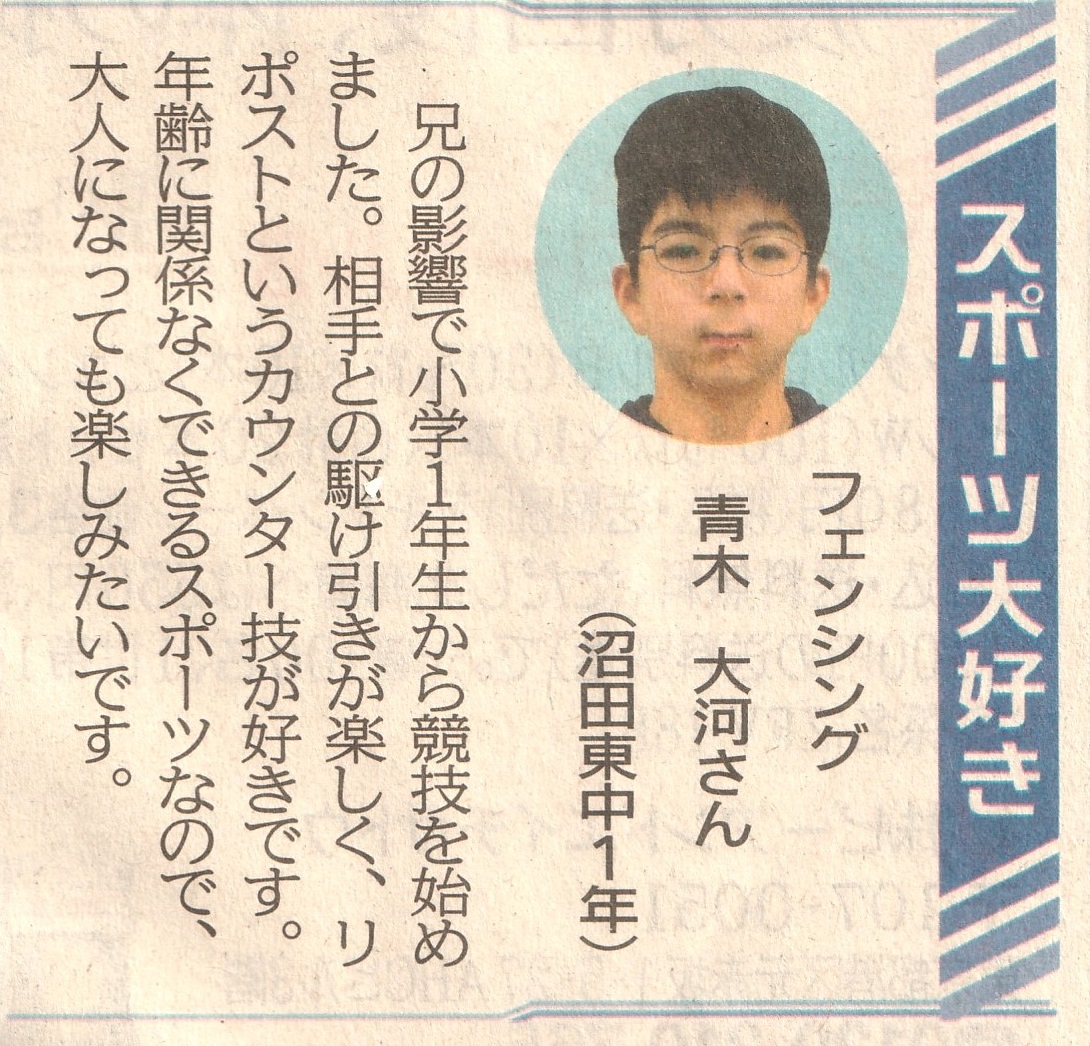 スポーツ大好き
フェンシング
青木　大河さん
（沼田東中１年）
兄の影響で小学１年生から競技を始め
ました。相手との駆け引きが楽しく、リ
ポストというカウンター技が好きです。
年齢に関係なくできるスポーツなので、
大人になっても楽しみたいです。